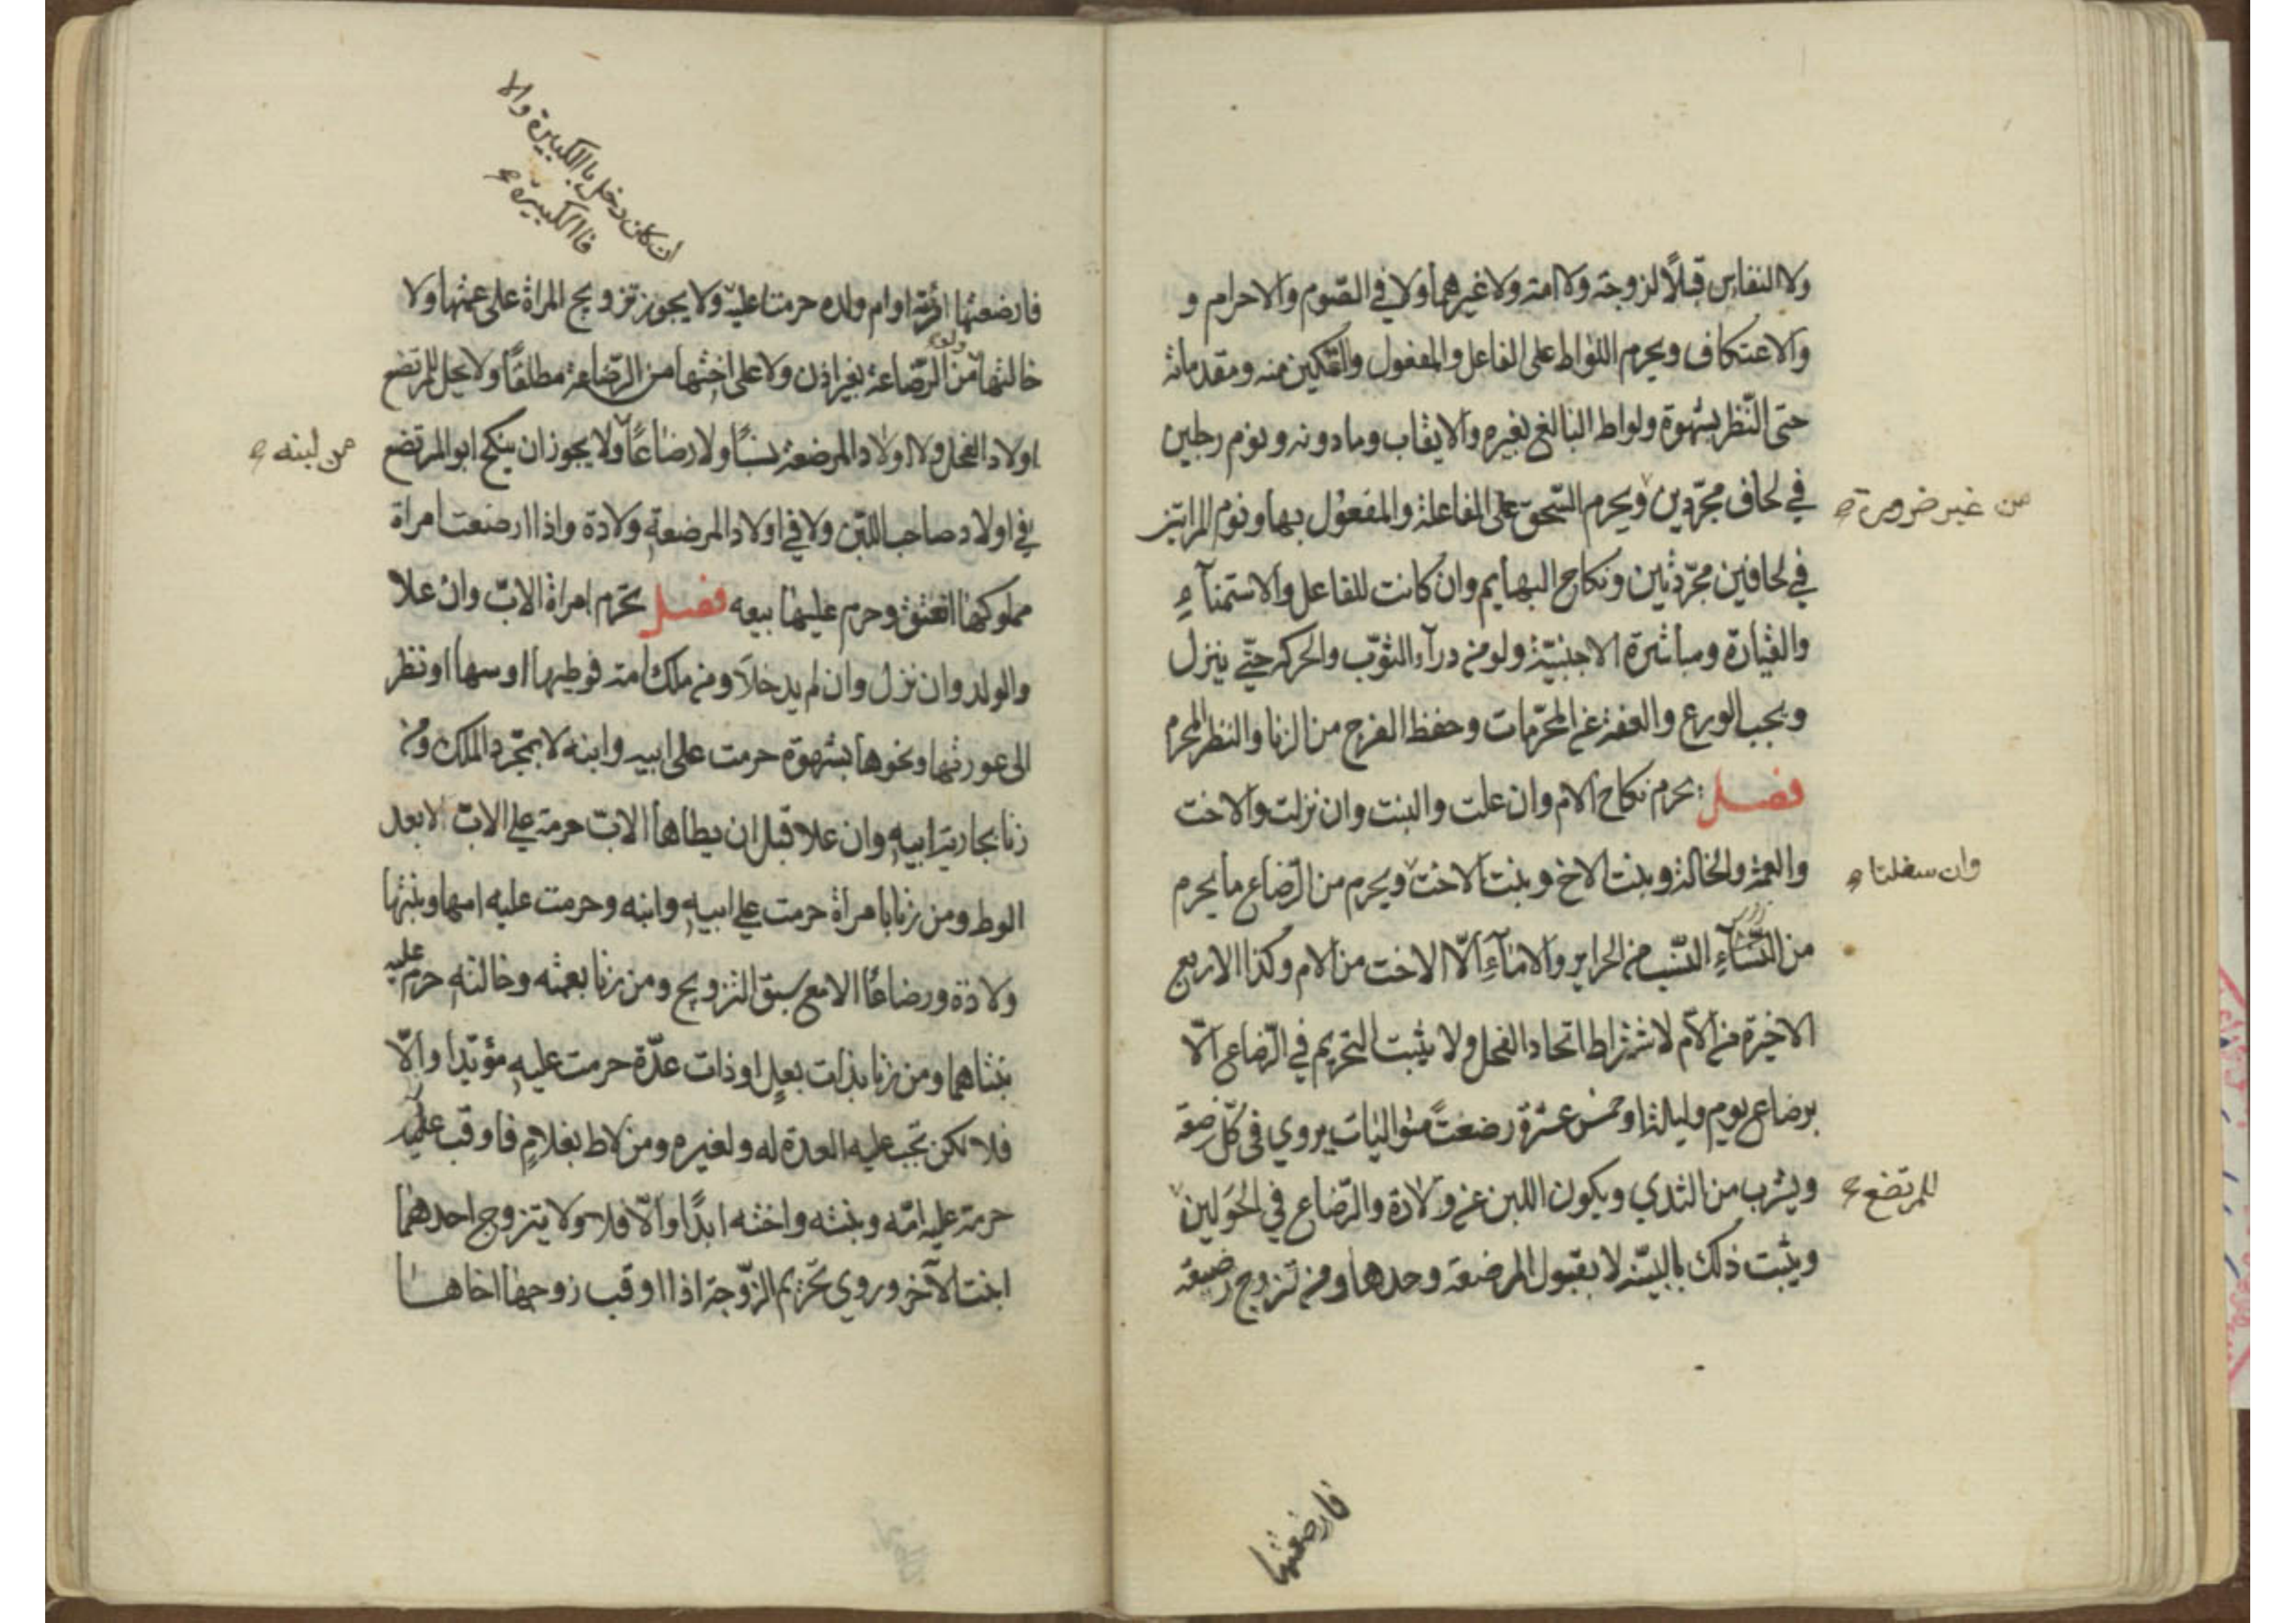 ولا النفاس قبلاً لزوجته ولا امته ولا غيرهما ولا في الصّوم والاحرام و
والاعتكاف ويحرم اللواط على الفاعل والمفعول والتمكين منه ومقدماته
حتى النّظر بشهوة ولواط البالغ بغيره والايقاب وما دونه ونوم رجلين
في لحاف مجرّدين ويحرم السّحق على الفاعلة والمفعول بها ونوم المراتين
من غير ضرورة
في لحافين مجرّدتين ونكاح البهايم وان كانت للفاعل والاستمنآء
والقيادة ومباشرة الاجنبيّة ولو من درآء الثوب والحركه حتّي ينزل
ويجب الورع والعفة عن المحرّمات وحفظ الفرج من الزنا والنظر المحرم
فصل يحرم نكاح الام وان علت والبنت وان نزلت والاخت
والعمة والخالة وبنت الاخ وبنت الاخت ويحرم من الرّضاع ما يحرم
وان سفلتا
من النسآء النّسب من الحراير والامآء الّا الاخت من الام وكذا الاربع
الاخيرة من الام لاشتراط اتحاد الفحل ولا يثبت التحريم في الرّضاع الّا
برضاع يوم وليلة او خمس عشرة رضعتً متواليات يروي في كلّ رضعة
ويشرب من الثدي ويكون اللبن عن ولادة والرّضاع في الحولين
للمرتضع
ويثبت ذلك بالبيّنه لا بقبول المرضعة وحدها ومن تزوج رضيعة
فارضعتها
ان كان دخل بالكبيرة والا
فاالكبيرة
فارضعتها امرئته او ام ولده حرمتا عليه ولا يجوز تزويج المراة على عمتها ولا
خالتها من الرّضاعة بغير اذن ولا على اختها من الرّضاعة مطلقًا ولا يحل للمرتضع
اولاد الفحل ولا اولاد المرضعة نسبًا ولا رضاعًا ولا يجوز ان ينكح ابو المرتضع
من لبنه
في اولاد صاحب اللبن ولا في اولاد المرضعة ولادة واذا ارضعت امراة
مملوكها انعتق وحرم عليها بيعه فصل تحرم امراة الابّ وان علا
والولد وان نزل وان لم يدخلا ومن ملك امته فوطيها او مسها او نظر
الى عورتها ونحوها بشهوة حرمت على ابيه وابنه لا بمجّرد الملك ومن
زنا بجارية ابيه وان علا قبل ان يطاها الابّ حرمة علي الابّ لا بعد
الوط ومن زنا بامراة حرمت علي ابيه وابنه وحرمت عليه امها وبنتها
ولادة ورضاعًا الا مع سبق التزويج ومن زنا بعمته وخالته حرم عليه
بنتاهما ومن زنا بذات بعل او ذات عدّة حرمت عليه مؤبّدا والّا
فلا لكن تجب عليه العدة له ولغيره ومن لاط بغلام فاوقب عليه
حرمة عليه امّه وبنته واخته ابدًا والّا فلا ولا يتزوج احدهما
ابنت الآخر وروي تحريم الزّوجة اذا اوقب زوجها اخاها